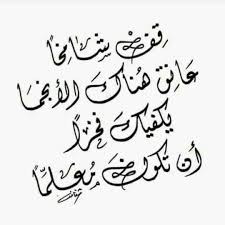 قف شامخًا
عانق هناك الأنجما
يكفيك فخرًا
أن تكون معلمًا